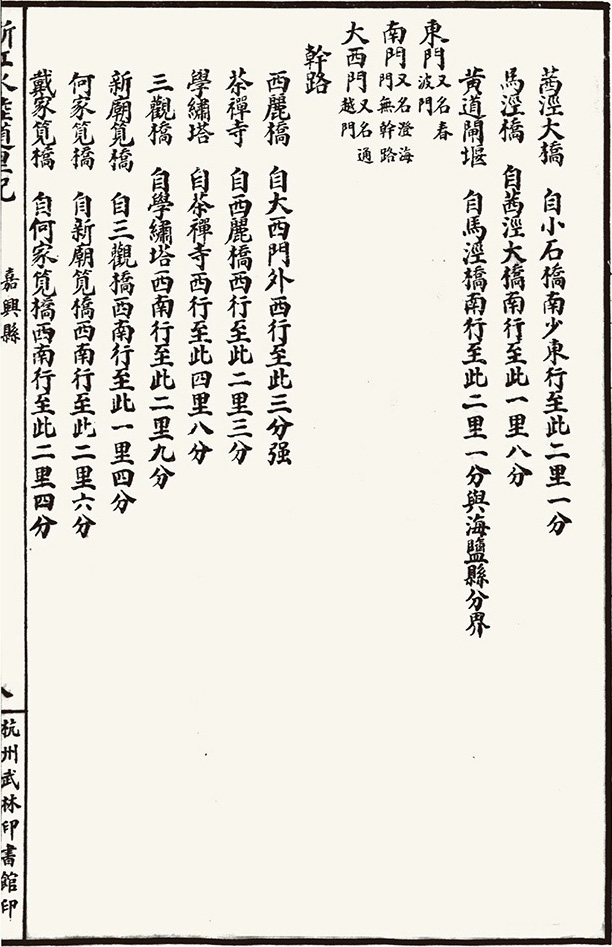 茜涇大橋　自小石橋南少東行至此二里一分
馬涇橋　自茜涇大橋南行至此一里八分
黃道閘堰　自馬涇橋南行至此二里一分與海鹽縣分界
東門又名春波門
南門又名澄海門無幹路
大西門又名通越門
幹路
西麗橋　自大西門外西行至此三分强
茶禪寺　自西麗橋西行至此二里三分
學繡塔　自茶禪寺西行至此四里八分
三觀橋　自學繡塔西南行至此二里九分
新廟筧橋　自三觀橋西南行至此一里四分
何家筧橋　自新廟筧橋西南行至此二里六分
戴家筧橋　自何家筧橋西南行至此二里四分
浙江水陸道里記　嘉興縣　八　杭州武林印書館印